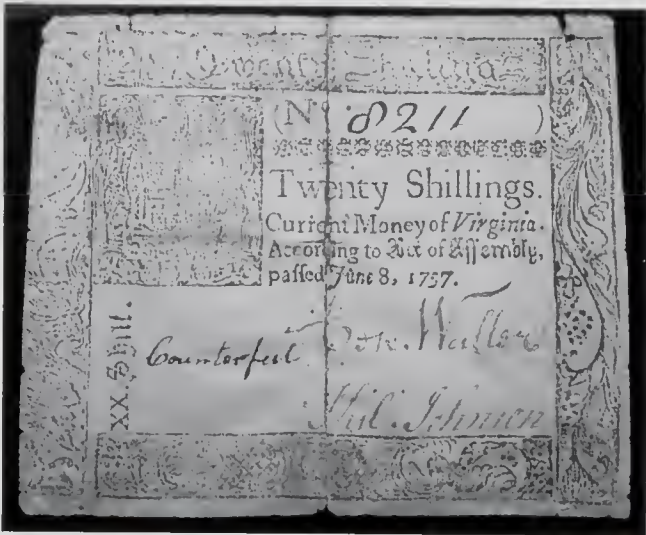 Twenty Shillings
(No. 8211)
Twenty Shillings.
Current Money of Virginia.
According to Act of Assembly,
passed June 8, 1757.
XX. Shill.
Counterfeit
Waller
Phil. Johnson